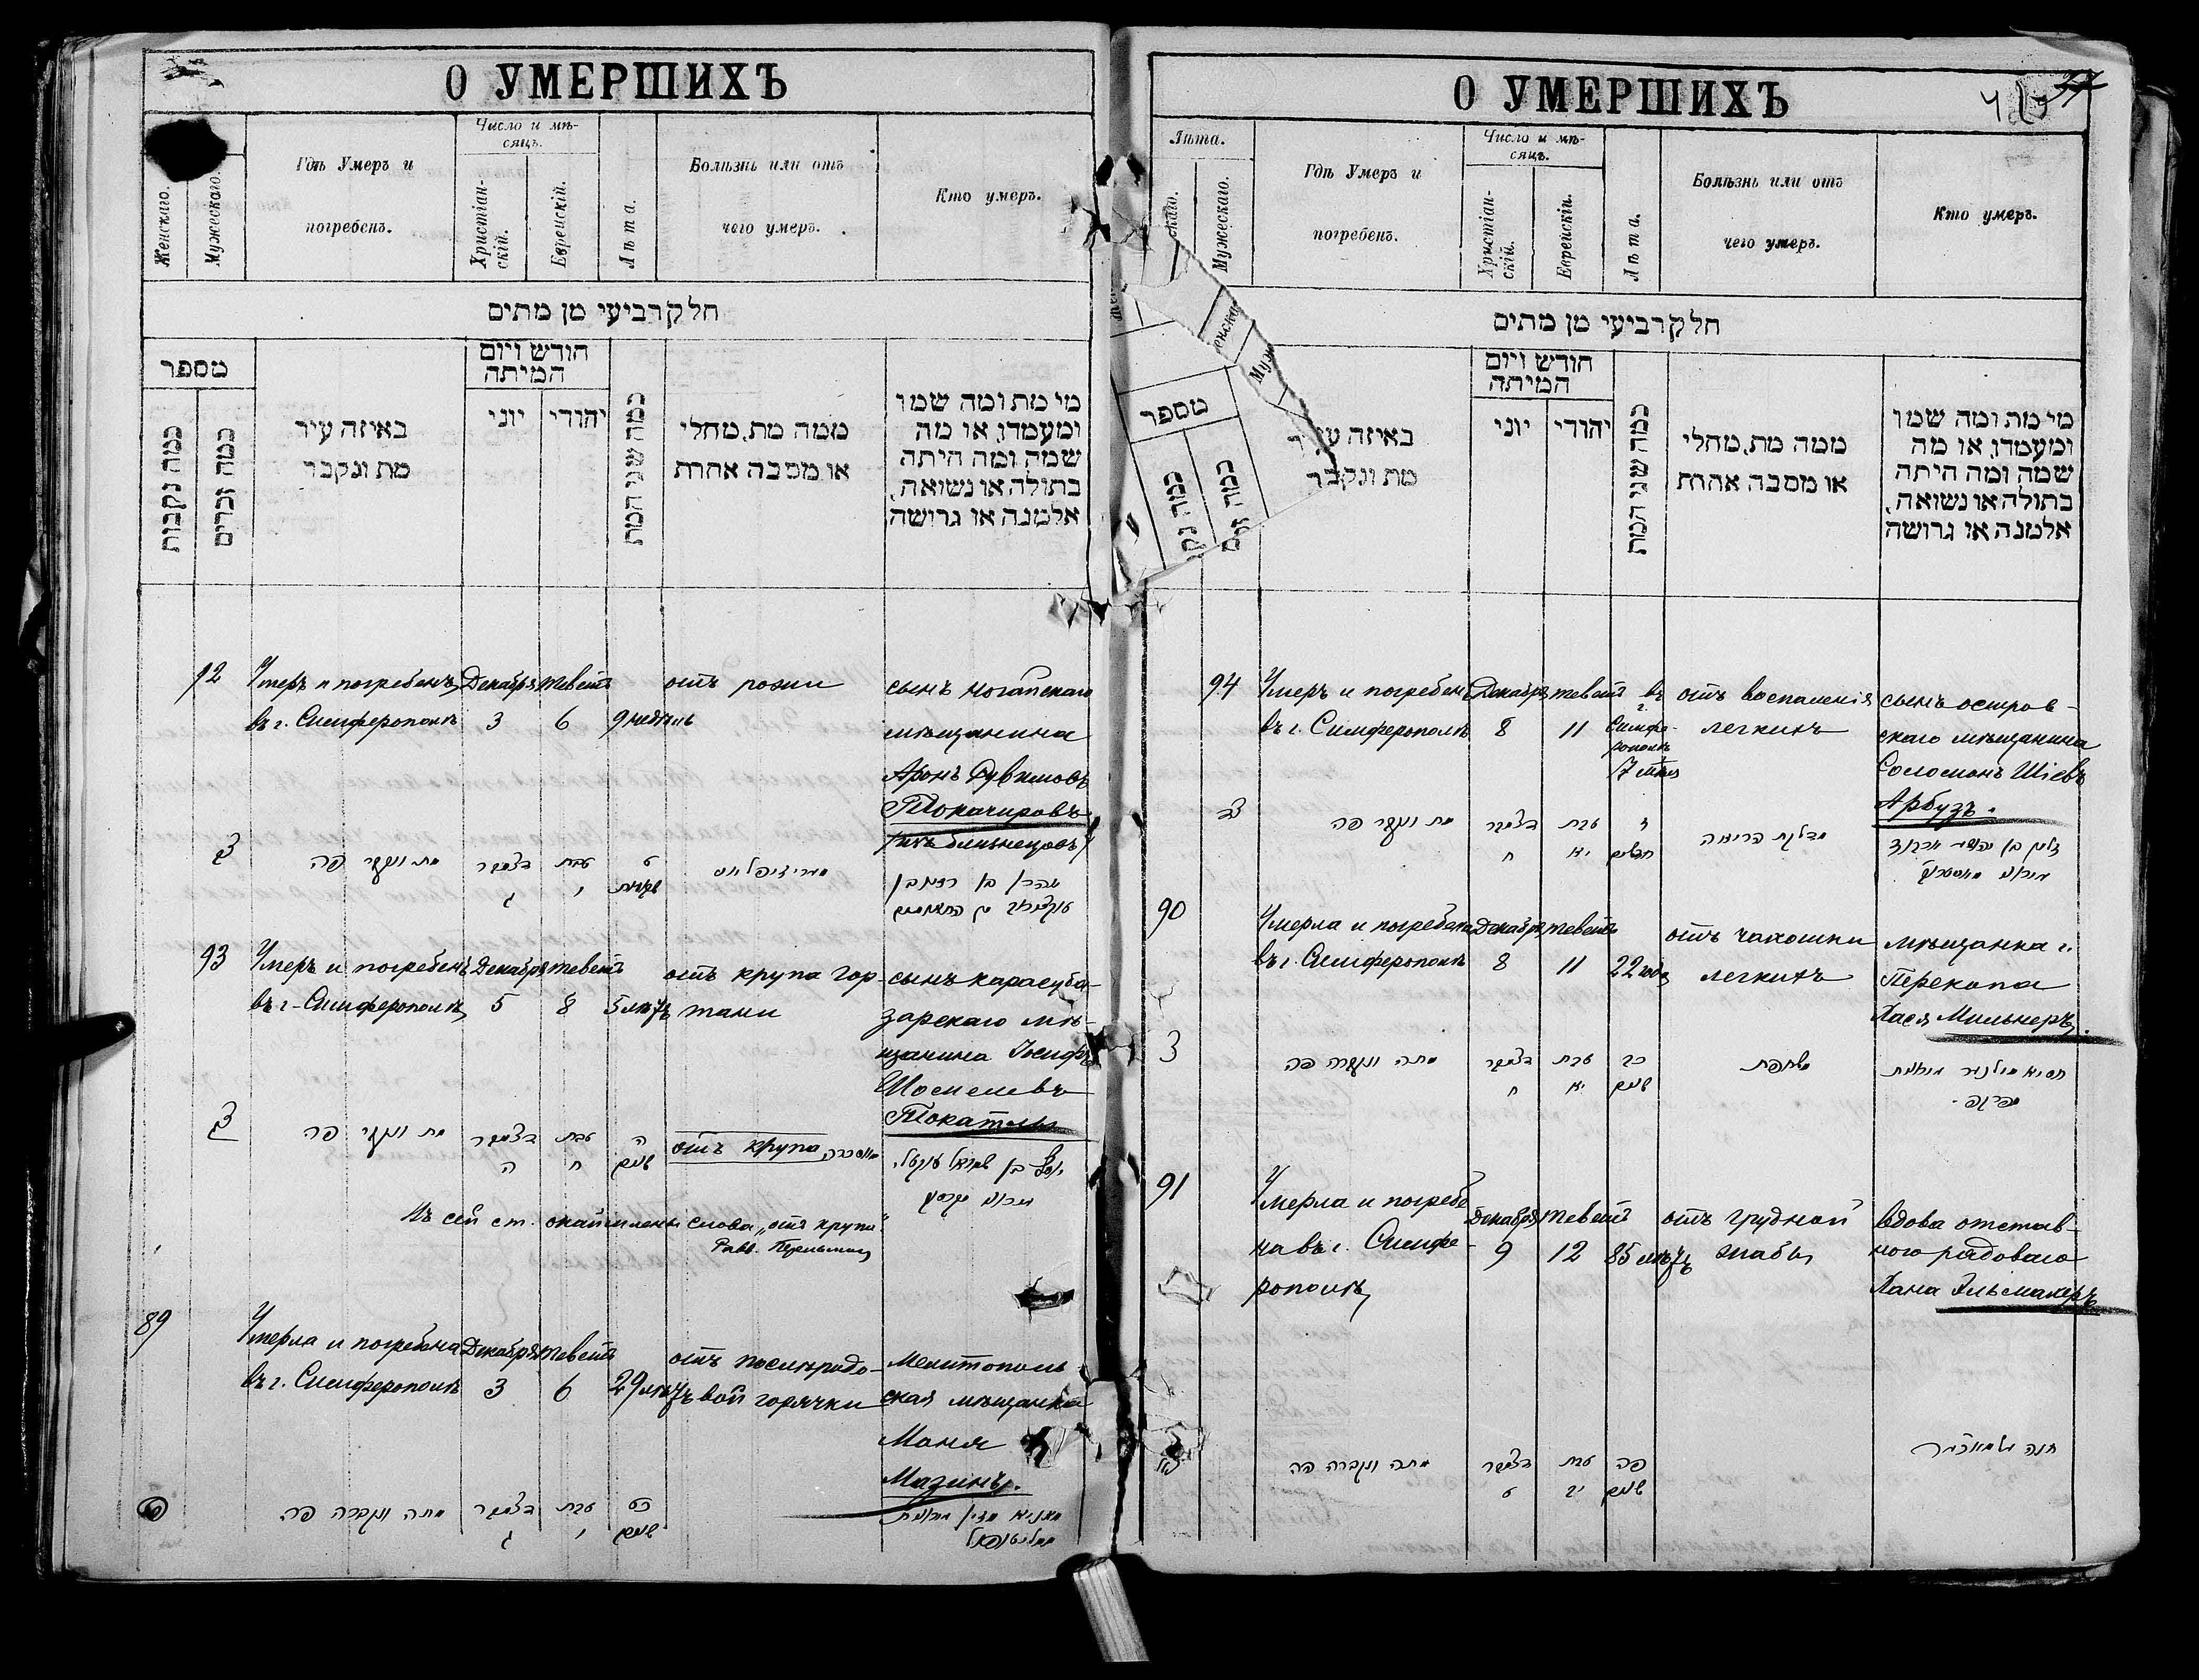 О УМЕРШИХЪ
Женскаго.
Мужескаго.
Гдѣ Умеръ и
погребенъ.
Число и мѣ-
сяцъ.
Христіан-
скій.
Еврейскій.
Лѣта.
Болѣзнь или отъ
чего умеръ.
Кто умеръ.
חלק רביעי מן מתים
מספר
כמה נקבות
כמה זכרים
באיזה עיר
מת ונקבר
חודש ויום
המיתה
יוני
יהודי
כמה שני המת
ממה מת, מחלי
או מסבה אחרת
מי מת ומה שמו
ומעמדו, או מה
שמה ומה היתה
בתולה או נשואה,
אלמנה או גרושה
92
Умеръ и погребенъ
въ г. Симферополѣ
Декабря
3
тевета
6
9 недѣль
отъ рожи
сынъ ногайскаго
мѣщанина
Аронъ Рувимовъ
Токачировъ
מת ונקבר פה
דצמבר
ג
טבת
ו
ט
שבועות
אהרן בן ראובן
93
Умеръ и погребенъ
въ г. Симферополѣ
Декабря
5
тевета
8
5 лѣтъ
отъ крупа гор-
тани
сынъ карасуба-
зарскаго мѣ-
щанина Іосифъ
Шосмелевъ
Токатлы
מת ונקבר פה
דצמבר
ה
טבת
ח
ה
שנים
отъ крупа
Въ сей ст. окаймлены слова „отъ крупа“
Равв.
89
Умерла и погребена
въ г. Симферополѣ
Декабря
3
тевета
6
29 лѣтъ
отъ послѣродо-
вой горячки
Мелитополь
ская мѣщанка
Маня
Мазинъ.
מתה ונקברה פה
דצמבר
ג
טבת
ו
כט
שנים
מאניא מזין
О УМЕРШИХЪ
37
Лѣта.
скаго.
Мужескаго.
Гдѣ Умеръ и
погребенъ.
Число и мѣ-
сяцъ.
Христіан-
скій.
Еврейскій.
Лѣта.
Болѣзнь или отъ
чего умеръ.
Кто умеръ.
חלק רביעי מן מתים
מספר
באיזה עיר
מת ונקבר
חודש ויום
המיתה
יוני
יהודי
כמה שני המת
ממה מת, מחלי
או מסבה אחרת
מי מת ומה שמו
ומעמדו, או מה
שמה ומה היתה
בתולה או נשואה,
אלמנה או גרושה
94
Умеръ и погребенъ
въ г. Симферополѣ
Декабря
8
тевета
11
въ
г.
Симфе-
рополѣ
отъ воспаленія
легкихъ
сынъ остров-
скаго мѣщанина
Соломонъ Шіевъ
Арбузъ.
מת ונקבר פה
דצמבר
ח
טבת
יא
ז
חדשים
מדלקת הריאה
90
Умерла и погребена
въ г. Симферополѣ
Декабря
8
тевета
11
22 года
отъ чахотки
легкихъ
мѣщанка г.
Перекопа
Хася Мильнеръ.
מתה ונקברה פה
דצמבר
ח
טבת
יא
כב
שנים
משחפת
חסיא מילנער
91
Умерла и погребе
на въ г. Симфе-
рополѣ
Декабря
9
тевета
12
85 лѣтъ
отъ грудной
жабы
вдова отстав-
ного рядоваго
Хана Эльмахеръ
מתה ונקברה פה
דצמבר
ט
טבת
יב
פה
שנים
חנה